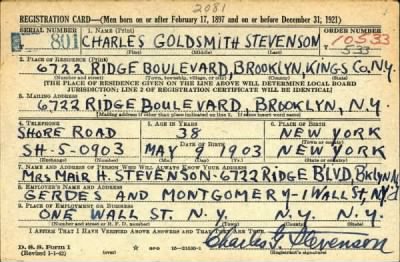 2081
REGISTRATION CARD—(Men born on or after February 17, 1897 and on or before December 31, 1921)
SERIAL NUMBER 1. NAME (Print) ORDER NUMBER
801 CHARLES GOLDSMITH STEVENSON 10533
(First) (Middle) (Last)
2. PLACE OF RESIDENCE (Print)
6722 RIDGE BOULEVARD, BROOKLYN, KINGS Co. N.Y.
(Number and street) (Town, township, village, or city) (County) (State)
[THE PLACE OF RESIDENCE GIVEN ON THE LINE ABOVE WILL DETERMINE LOCAL BOARD
JURISDICTION; LINE 2 OF REGISTRATION CERTIFICATE WILL BE IDENTICAL]
3. MAILING ADDRESS
6722 RIDGE BOULEVARD, BROOKLYN, N.Y.
[Mailing address if other than place indicated on line 2. If same insert word same]
4. TELEPHONE 5. AGE IN YEARS 6. PLACE OF BIRTH
SHORE ROAD 38 NEW YORK
DATE OF BIRTH (Town or county)
SH-5-0903 MAY 9 1903 NEW YORK
(Exchange) (Number) (Mo.) (Day) (Yr.) (State or country)
7. NAME AND ADDRESS OF PERSON WHO WILL ALWAYS KNOW YOUR ADDRESS
MRS MAIR H. STEVENSON-6722 RIDGE BLVD, BKLYN N.Y.
8. EMPLOYER'S NAME AND ADDRESS
GERDES AND MONTGOMERY-1 WALL ST, NYC
9. PLACE OF EMPLOYMENT OR BUSINESS
ONE WALL ST. N.Y. N.Y. N.Y.
(Number and street or R. F. D. number) (Town) (County) (State)
I AFFIRM THAT I HAVE VERIFIED ABOVE ANSWERS AND THAT THEY ARE TRUE.
D. S. S. Form 1
(Revised 1-1-42) (over) Charles G. Stevenson